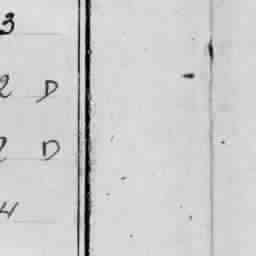 3
2 D
2 D
4